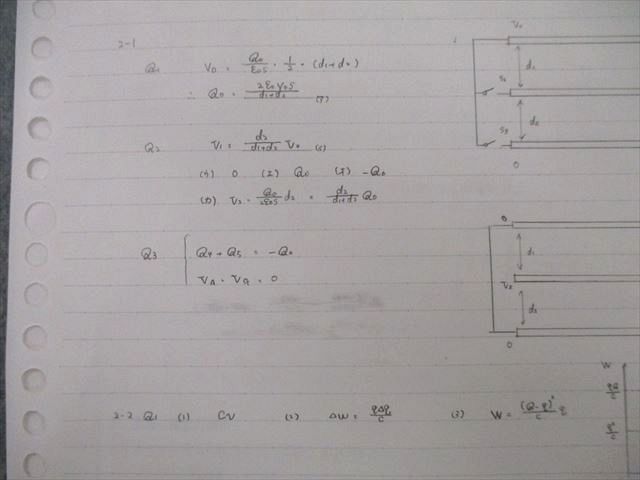 2-1
Q1 V0 = Q0/ε0S · 1/2 · (d1+d2)
∴ Q0 = 2ε0V0S/d1+d2 (ア)
Q2 V1 = d2/d1+d2 V0
0 (エ) Q0 -Q0
V2 = Q0/2ε0S d2 = d2/d1+d2
Q3 Q4 + Q5 = -Q0
= 0
2-2 Q1 (1) CV (2) ΔW = qΔq/C (3) W = (Q-q)²/C
V0
d1
S2
d2
S3
0
0
d1
V2
d2
0
W